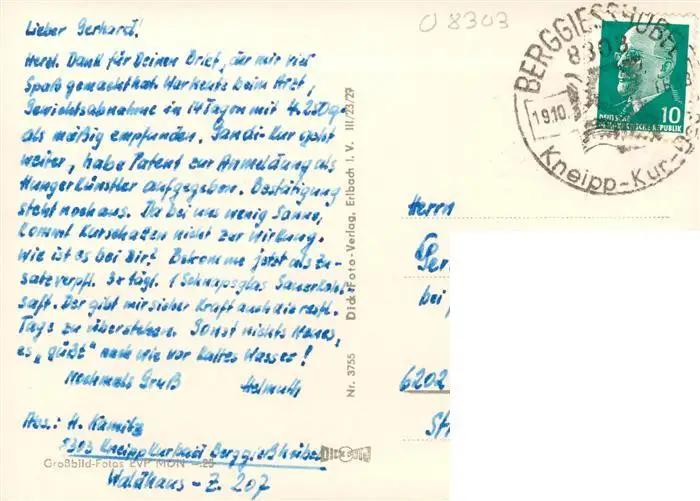 Lieber Gerhard!
Herzl. Dank für Deinen Brief, der mir viel
Spaß gemacht hat. War heute beim Arzt,
Gewichtsabnahme in 14 Tagen mit 4250 gr
als mäßig empfunden. Gandi-Kur geht
weiter, habe Patent zur Anmeldung als
Hungerkünstler aufgegeben. Bestätigung
steht noch aus. Da bei uns wenig Sonne,
kommt Kurschatten nicht zur Wirkung.
Wie ist es bei Dir? Bekomme jetzt als Zu-
satzverpfl. 3x tägl. 1 Schnapsglas Sauerkohl-
saft. Der gibt mir sicher Kraft auch die restl.
Tage zu überstehen. Sonst nichts Neues,
es „gießt" nach wie vor kaltes Wasser!
Nochmals Gruß Helmuth
Abs.: H. Kamitz
8303 Kneippkurbad Berggießhübel
Waldhaus - Z. 207
Großbild-Fotos EVP MDN -.25
DICK FOTO
Nr. 3755 Dick-Foto-Verlag, Erlbach i. V. III/23/29
O 8303
BERGGIESSHÜBEL
8303
19.10.
Kneipp-Kur-O
10
DEUTSCHE
DEMOKRATISCHE REPUBLIK
Herrn
Ger
bei
6202
Str